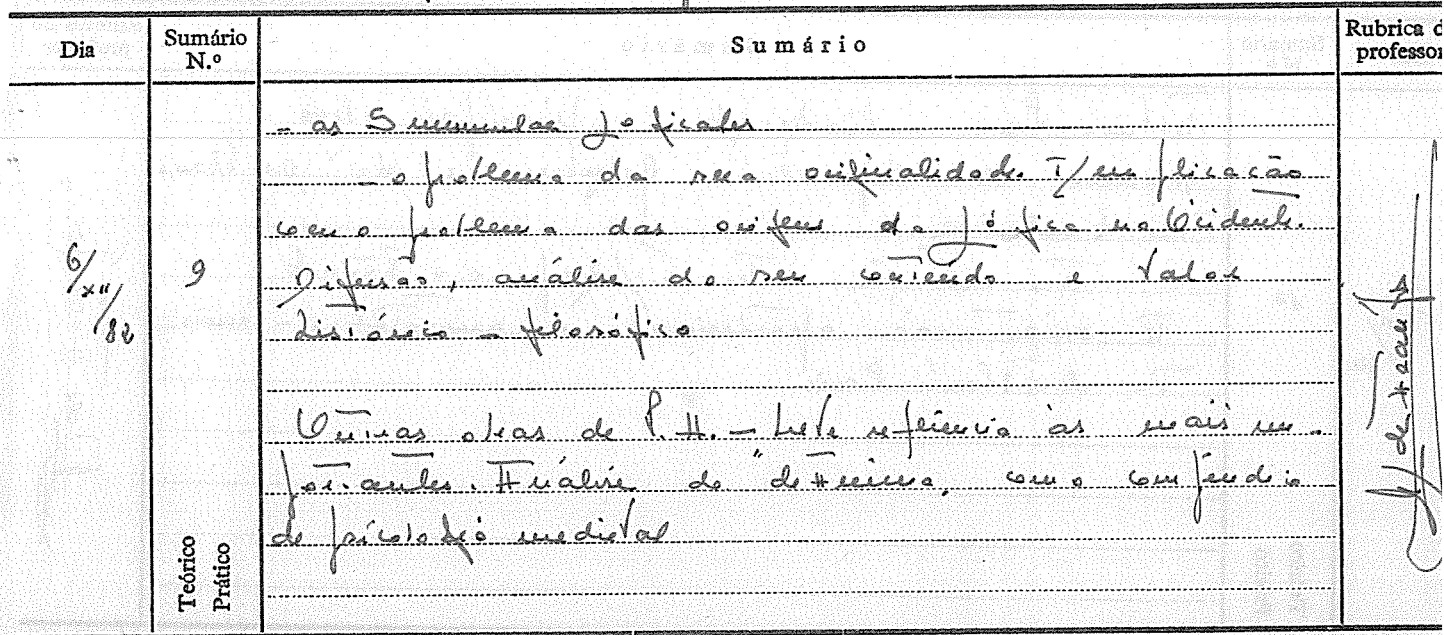 Dia
Sumário N.º
Sumário
Rubrica d
professor
- as Summulae Logicales
- o problema da sua originalidade. Implicação
com o problema das origens da Lógica no Ocidente.
6/XII/82
9
Difusão, análise do seu conteúdo e valor
histórico-filosófico
Outras obras de P. H. - breve referência às mais im-
portantes. Análise do "de Anima, como compêndio
de psicologia medieval
Teórico
Prático